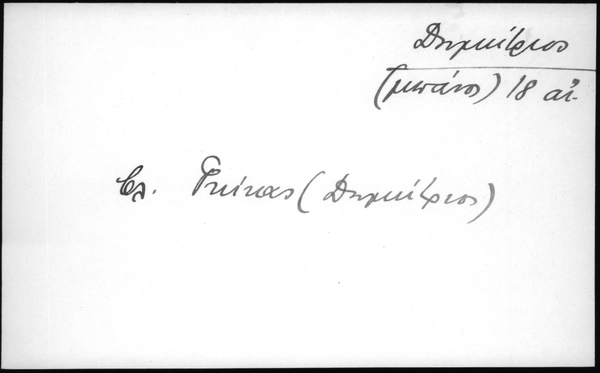 Δημήτριος
(μπάνος) 18 αἰ.
Βλ. Γκίκας (Δημήτριος)